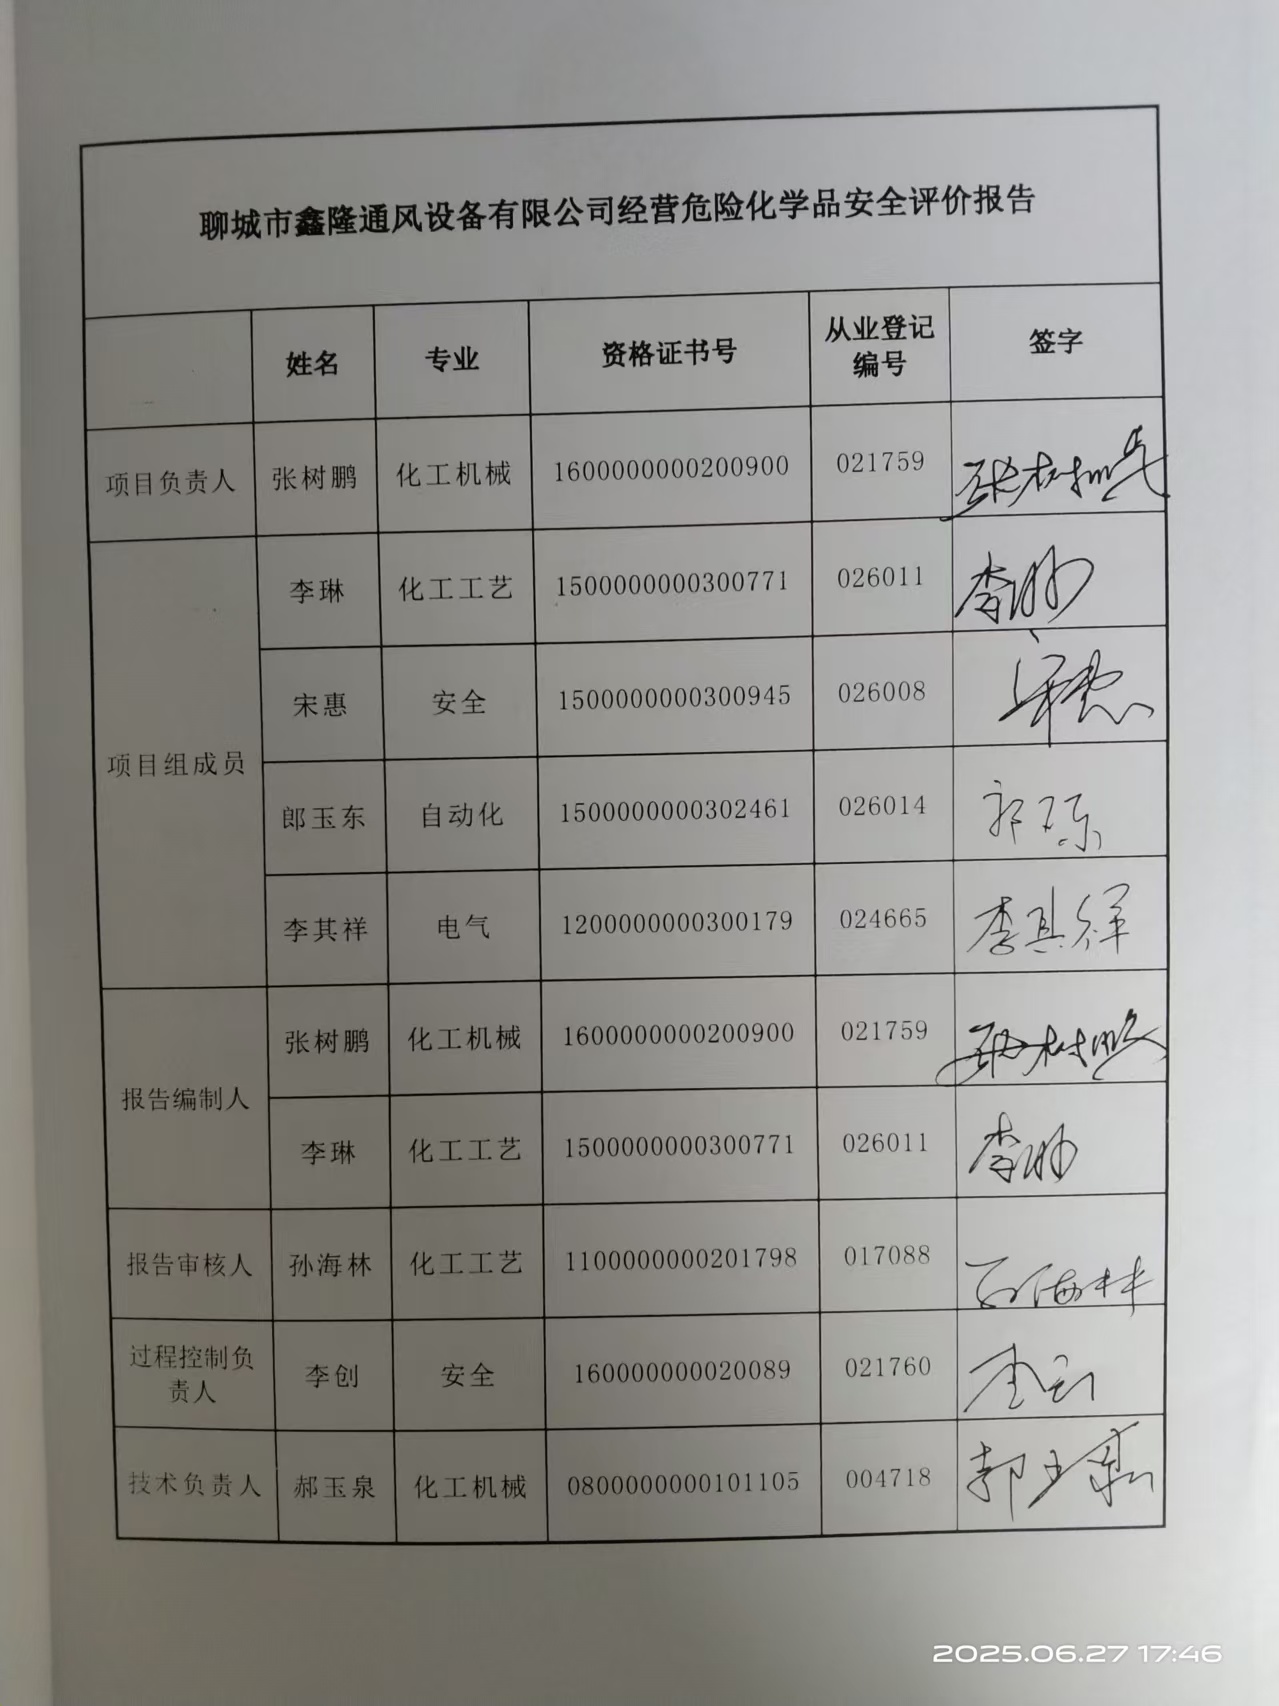 聊城市鑫隆通风设备有限公司经营危险化学品安全评价报告
姓名 专业 资格证书号 从业登记编号 签字
项目负责人 张树鹏 化工机械 1600000000200900 021759 张树鹏
项目组成员 李琳 化工工艺 1500000000300771 026011 李琳
宋惠 安全 1500000000300945 026008 宋惠
郎玉东 自动化 1500000000302461 026014 郎玉东
李其祥 电气 1200000000300179 024665 李其祥
报告编制人 张树鹏 化工机械 1600000000200900 021759 张树鹏
李琳 化工工艺 1500000000300771 026011 李琳
报告审核人 孙海林 化工工艺 1100000000201798 017088 孙海林
过程控制负责人 李创 安全 160000000020089 021760 李创
技术负责人 郝玉泉 化工机械 0800000000101105 004718
2025.06.27 17:46